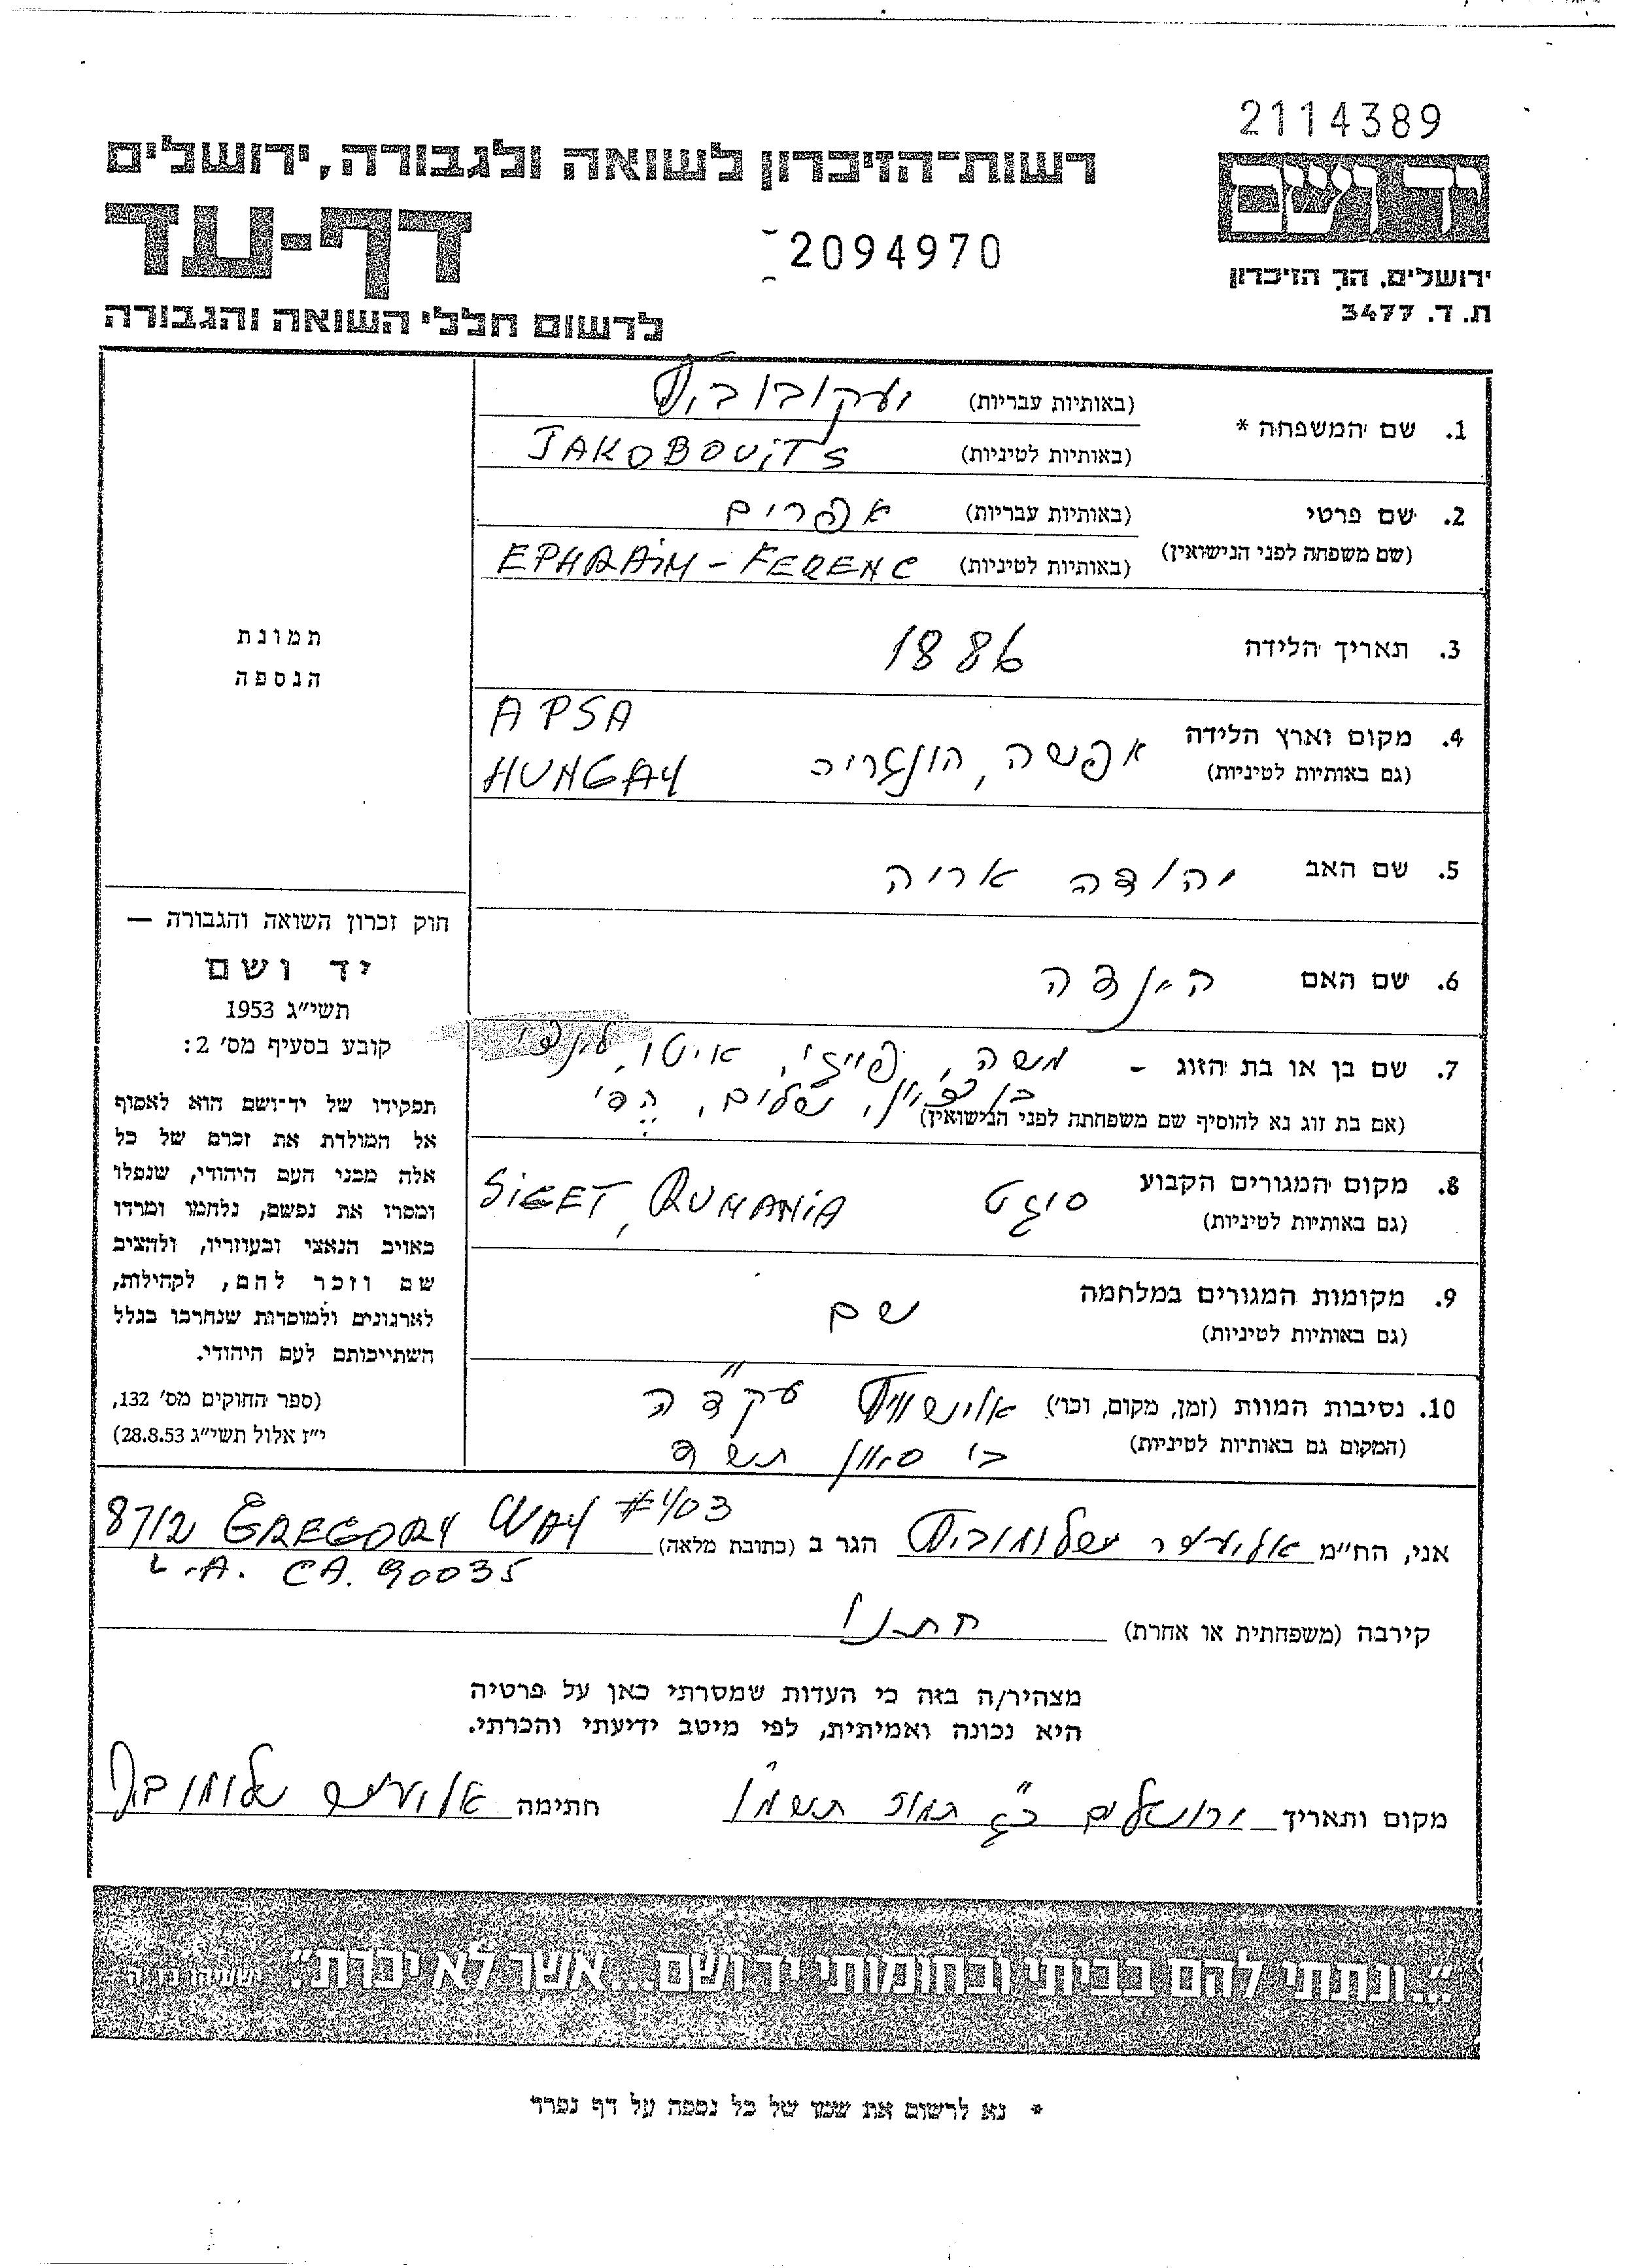 2114389
רשות־הזיכרון לשואה ולגבורה, ירושלים
יד ושם
דף-עד
2094970
ירושלים, הר הזיכרון
ת. ד. 3477
לרשום חללי השואה והגבורה
1. שם המשפחה * (באותיות עבריות) יעקובוביץ
(באותיות לטיניות) JAKOBOVITS
2. שם פרטי (באותיות עבריות) אפרים
(שם משפחה לפני הנישואין) (באותיות לטיניות) EPHRAIM - FERENC
תמונת
הנספה
3. תאריך הלידה 1886
4. מקום וארץ הלידה אפשה, הונגריה APSA
(גם באותיות לטיניות) HUNGAY
5. שם האב יהודה אריה
6. שם האם הינדה
7. שם בן או בת הזוג - משה, פייגי, איטו,
(אם בת זוג נא להוסיף שם משפחתה לפני הנישואין) בן ציון, שלום,
8. מקום המגורים הקבוע סיגט SIGET, RUMANIA
(גם באותיות לטיניות)
9. מקומות המגורים במלחמה שם
(גם באותיות לטיניות)
10. נסיבות המוות (זמן, מקום, וכו') אוישוויץ עקד״ה
(המקום גם באותיות לטיניות) ב' סיוון תש״ד
חוק זכרון השואה והגבורה —
יד ושם
תשי״ג 1953
קובע בסעיף מס׳ 2:
תפקידו של יד־ושם הוא לאסוף
אל המולדת את זכרם של כל
אלה מבני העם היהודי, שנפלו
ומסרו את נפשם, נלחמו ומרדו
באויב הנאצי ובעוזריו, ולהציב
שם וזכר להם, לקהילות,
לארגונים ולמוסדות שנחרבו בגלל
השתייכותם לעם היהודי.
(ספר החוקים מס׳ 132,
י״ז אלול תשי״ג 28.8.53)
אני, הח״מ אליעזר הגר ב (כתובת מלאה) 8712 GREGORY WAY #103
L.A. CA. 90035
קירבה (משפחתית או אחרת) חתנו
מצהיר/ה בזה כי העדות שמסרתי כאן על פרטיה
היא נכונה ואמיתית, לפי מיטב ידיעתי והכרתי.
מקום ותאריך ירושלים כ״ג תמוז תשמ״ו חתימה אליעזר
"...ונתתי להם בביתי ובחומותי יד ושם...אשר לא יכרת". ישעיהו נו, ה
* נא לרשום את שמו של כל נספה על דף נפרד